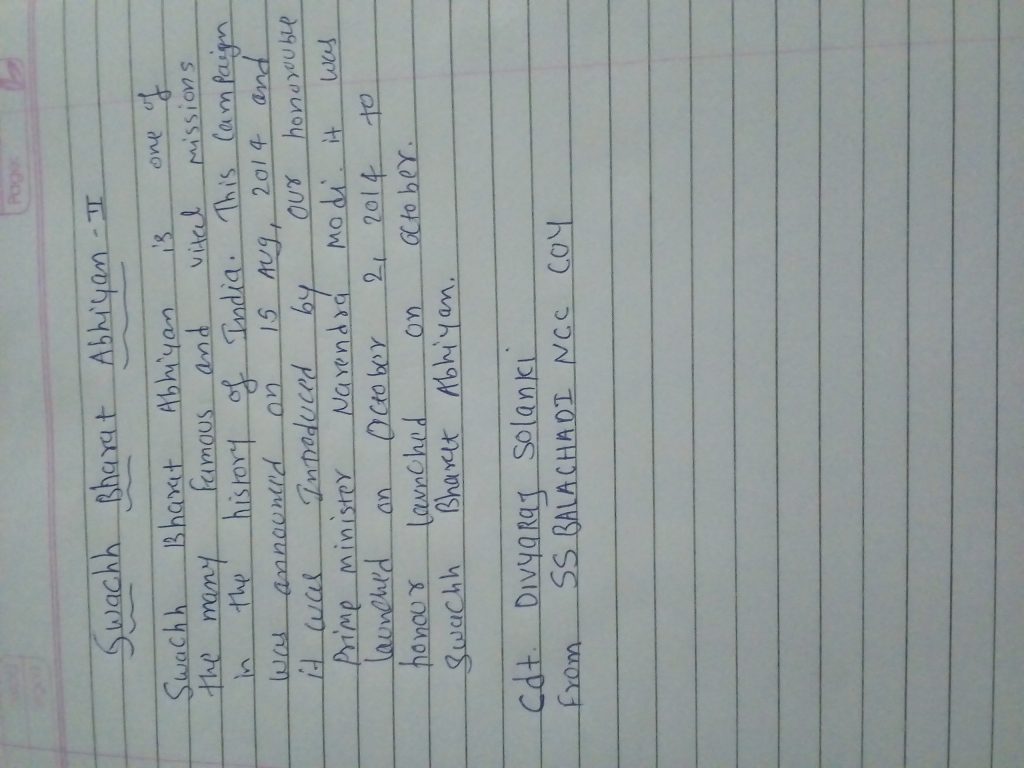 Page
Swachh Bharat Abhiyan - II
Swachh Bharat Abhiyan is one of
the many famous and vital missions
in the history of India. This Campaign
was announced on 15 Aug, 2014 and
it was Introduced by our honorouble
Prime ministor Narendra modi. it was
launched on October 2, 2014 to
honour launched on october.
Swachh Bharat Abhiyan.
Cdt. Divyaraj Solanki
From SS BALACHADI NCC COY